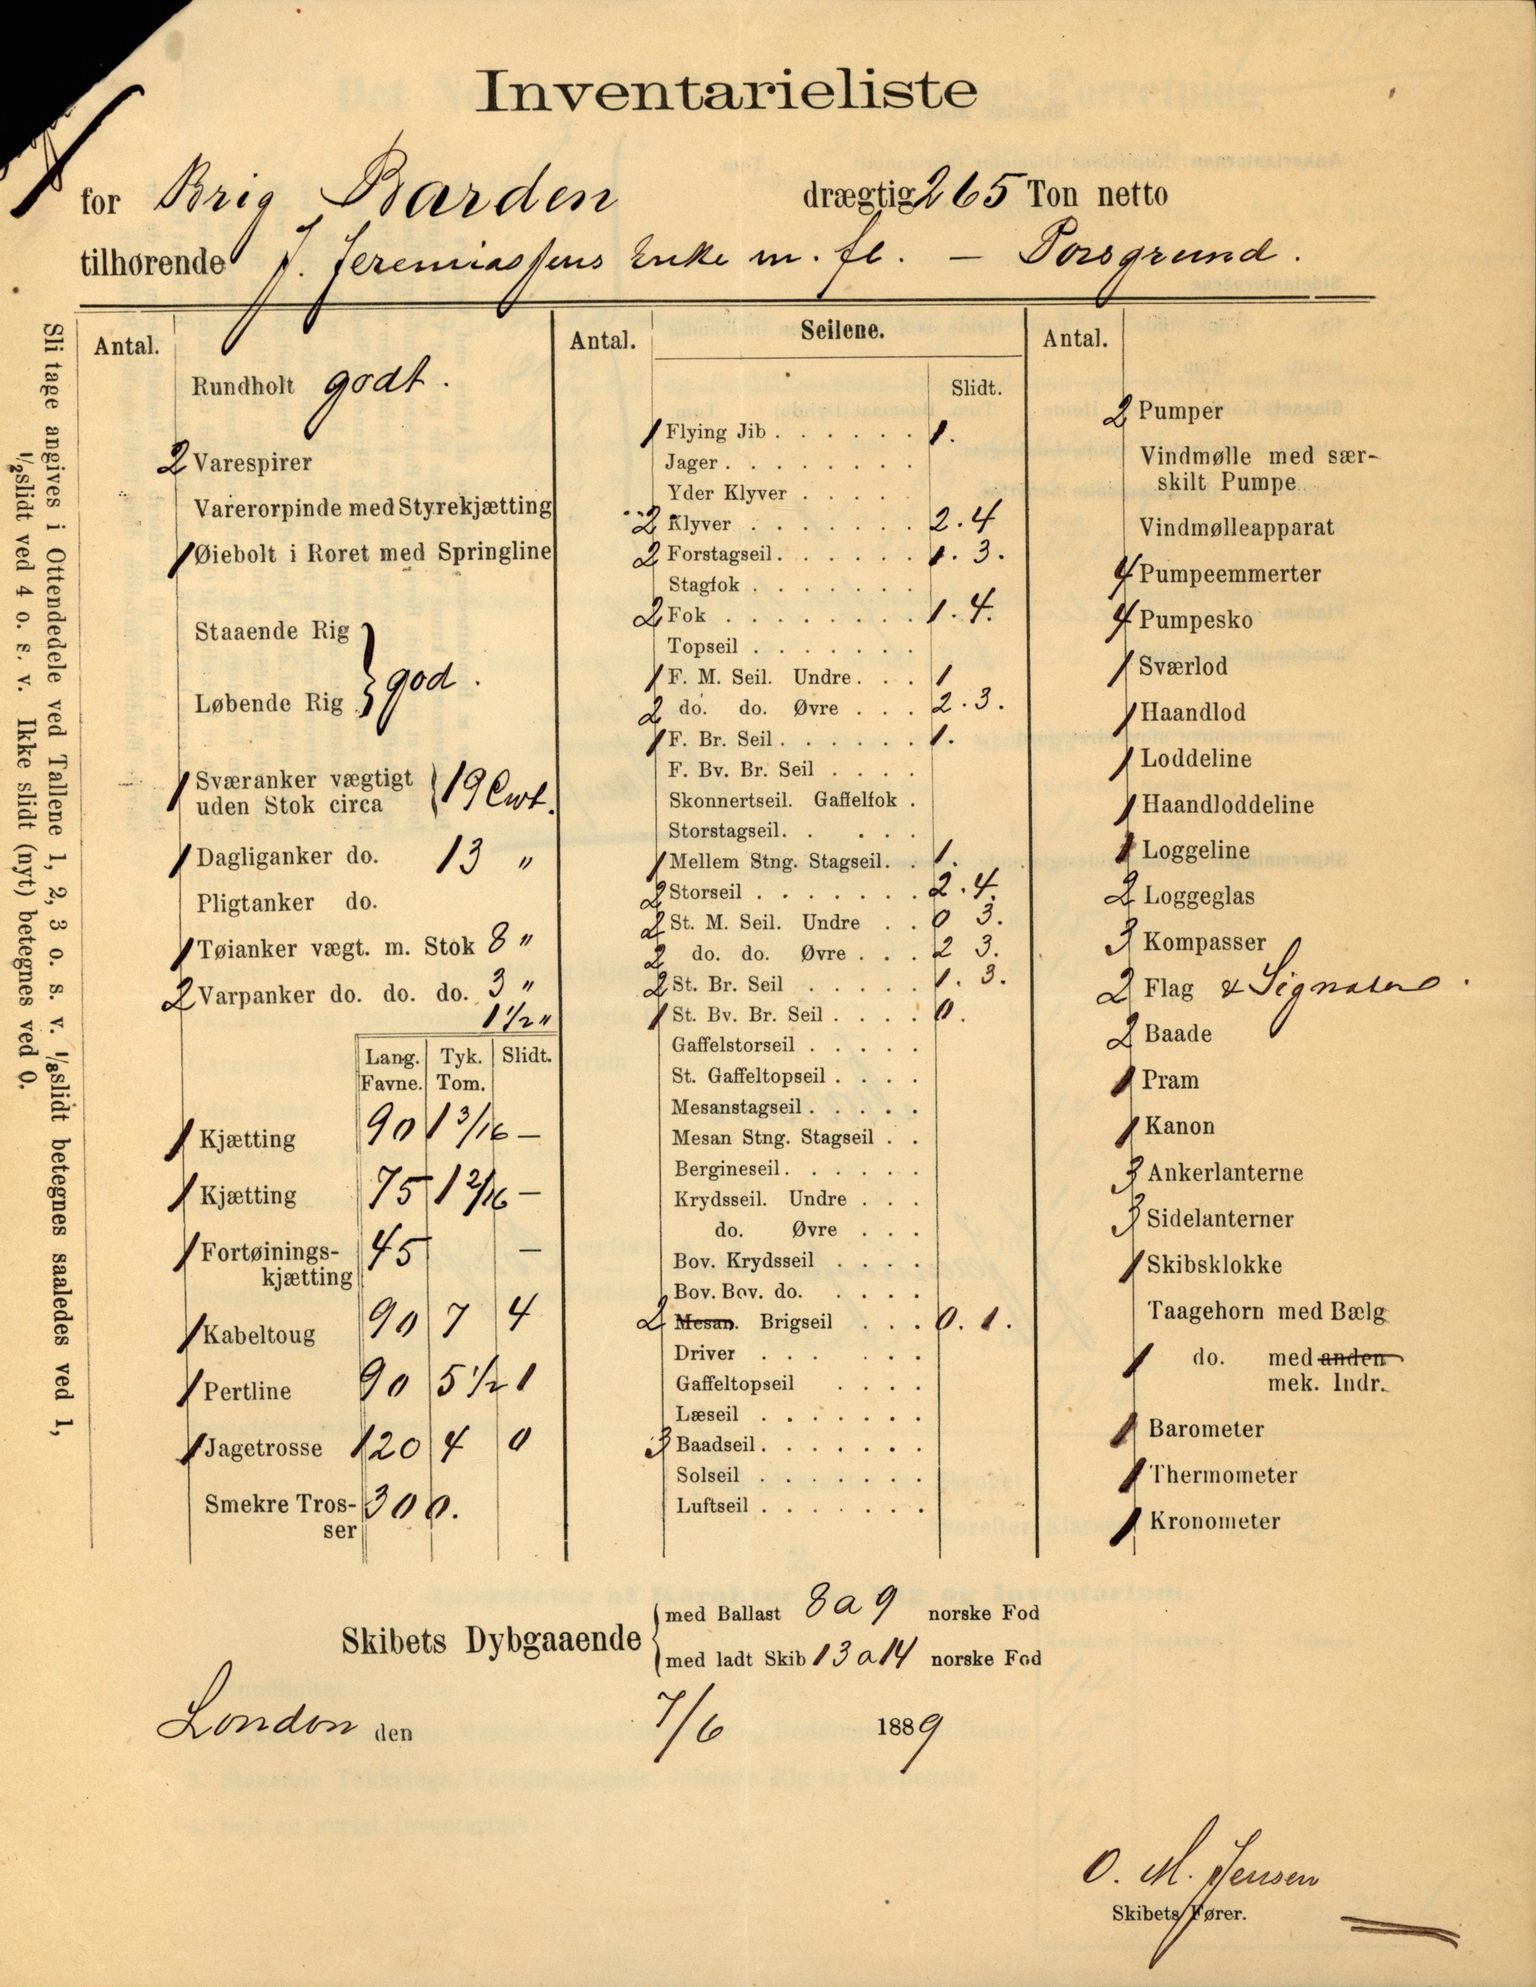 Inventarieliste
for Brig Barden drægtig 265 Ton netto
tilhørende J. Jeremiassens Enke m. fl. — Porsgrund.
Sli tage angives i Ottendedele ved Tallene 1, 2, 3 o. s. v. 1/8 slidt betegnes saaledes ved 1,
1/2 slidt ved 4 o. s. v. Ikke slidt (nyt) betegnes ved 0.
Antal.
Rundholt godt.
2 Varespirer
Varerorpinde med Styrekjætting
1 Øiebolt i Roret med Springline
Staaende Rig
Løbende Rig } god.
1 Sværanker vægtigt
uden Stok circa } 19 Cwt.
1 Dagliganker do. 13 "
Pligtanker do.
1 Tøianker vægt. m. Stok 8 "
2 Varpanker do. do. do. 3 "
1 1/2 "
Lang. Tyk. Slidt.
Favne. Tom.
1 Kjætting 90 1 3/16 —
1 Kjætting 75 1 2/16 —
1 Fortøinings-
kjætting 45 —
1 Kabeltoug 90 7 4
1 Pertline 90 5 1/2 1
1 Jagetrosse 120 4 0
Smekre Tros-
ser 300.
Antal. Seilene.
Slidt.
1 Flying Jib . . . . . . 1.
Jager . . . . . . .
Yder Klyver . . . . .
2 Klyver . . . . . . . 2. 4
2 Forstagseil . . . . . . 1. 3.
Stagfok . . . . . . .
2 Fok . . . . . . . . 1. 4.
Topseil . . . . . . .
1 F. M. Seil. Undre . . . 1
2 do. do. Øvre . . . 2. 3.
1 F. Br. Seil . . . . . . 1.
F. Bv. Br. Seil . . . .
Skonnertseil. Gaffelfok .
Storstagseil. . . . .
1 Mellem Stng. Stagseil. . 1.
2 Storseil . . . . . . . 2. 4.
2 St. M. Seil. Undre . . 0 3.
2 do. do. Øvre . . . 2 3.
2 St. Br. Seil . . . . . 1. 3.
1 St. Bv. Br. Seil . . . . 0.
Gaffelstorseil . . . . .
St. Gaffeltopseil . . . .
Mesanstagseil . . . . .
Mesan Stng. Stagseil . .
Bergineseil . . . . . .
Krydsseil. Undre . . .
do. Øvre . . .
Bov. Krydsseil . . . .
Bov. Bov. do. . . . .
2 Mesan. Brigseil . . . 0. 1.
Driver . . . . . .
Gaffeltopseil . . . .
Læseil . . . . . .
3 Baadseil . . . . . .
Solseil . . . . . . .
Luftseil . . . . . . .
Antal.
2 Pumper
Vindmølle med sær-
skilt Pumpe
Vindmølleapparat
4 Pumpeemmerter
4 Pumpesko
1 Sværlod
1 Haandlod
1 Loddeline
1 Haandloddeline
1 Loggeline
2 Loggeglas
3 Kompasser
2 Flag & Signaler.
2 Baade
1 Pram
1 Kanon
3 Ankerlanterne
3 Sidelanterner
1 Skibsklokke
Taagehorn med Bælg
1 do. med anden
mek. Indr.
1 Barometer
1 Thermometer
1 Kronometer
Skibets Dybgaaende { med Ballast 8 a 9 norske Fod
med ladt Skib 13 a 14 norske Fod
London den 7/6 1889
O. M. Jensen
Skibets Fører.